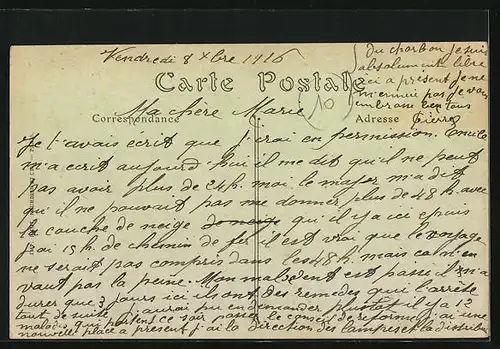 Vendredi 8 Xbre 1916
Carte Postale
Correspondance
Adresse
Ma chère Marie
Je t'avais ecrit que j'irai en permission. Emile
m'a ecrit aujourd'hui il me dit qu'il ne peut
pas avoir plus de 24 h. moi le major m'a dit
qu'il ne pouvait pas me donner plus de 48 h. avec
la couche de neige qu'il y a ici epuis
j'ai 15 h. de chemin de fer il est vrai que le voyage
ne serait pas compris dans les 48 h. mais ca n'en
vaut pas la peine. Mon mal de dent est passé il m'a
durer que 3 jours ici ils ont des remedes qui l'arrête
tout de suite j'aurai pu en demander plutot il y a 12
malades qui partent ce soir passer le conseil de reforme j'ai une
nouvelle place a present j'ai la direction des lampes et la distribution
du charbon je suis
absolument libre
ici a present je ne
m'ennuie pas je vous
embrasse bien tous
Pierre
10